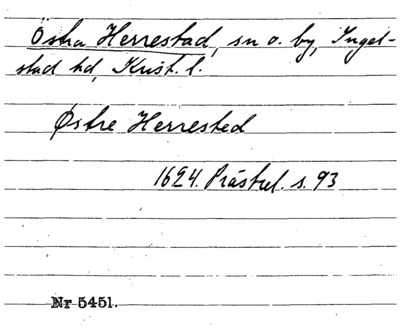 Östra Herrestad, sn o. by, Ingel-
stad hd, Krist. l.
Østre Herrested
1624. Prästrel. s. 93
Nr 5451.